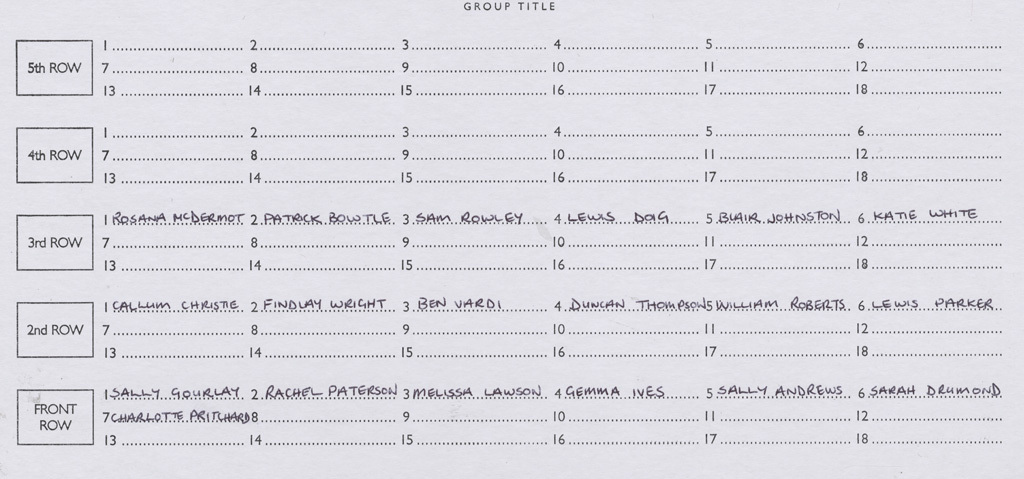 GROUP TITLE
5th ROW
1 2 3 4 5 6
7 8 9 10 11 12
13 14 15 16 17 18
4th ROW
1 2 3 4 5 6
7 8 9 10 11 12
13 14 15 16 17 18
3rd ROW
1 ROSANA MCDERMOT 2 PATRICK BOWTLE 3 SAM ROWLEY 4 LEWIS DOIG 5 BLAIR JOHNSTON 6 KATIE WHITE
7 8 9 10 11 12
13 14 15 16 17 18
2nd ROW
1 CALLUM CHRISTIE 2 FINDLAY WRIGHT 3 BEN VARDI 4 DUNCAN THOMPSON 5 WILLIAM ROBERTS 6 LEWIS PARKER
7 8 9 10 11 12
13 14 15 16 17 18
FRONT ROW
1 SALLY GOURLAY 2 RACHEL PATERSON 3 MELISSA LAWSON 4 GEMMA IVES 5 SALLY ANDREWS 6 SARAH DRUMOND
7 CHARLOTTE PRITCHARD 8 9 10 11 12
13 14 15 16 17 18